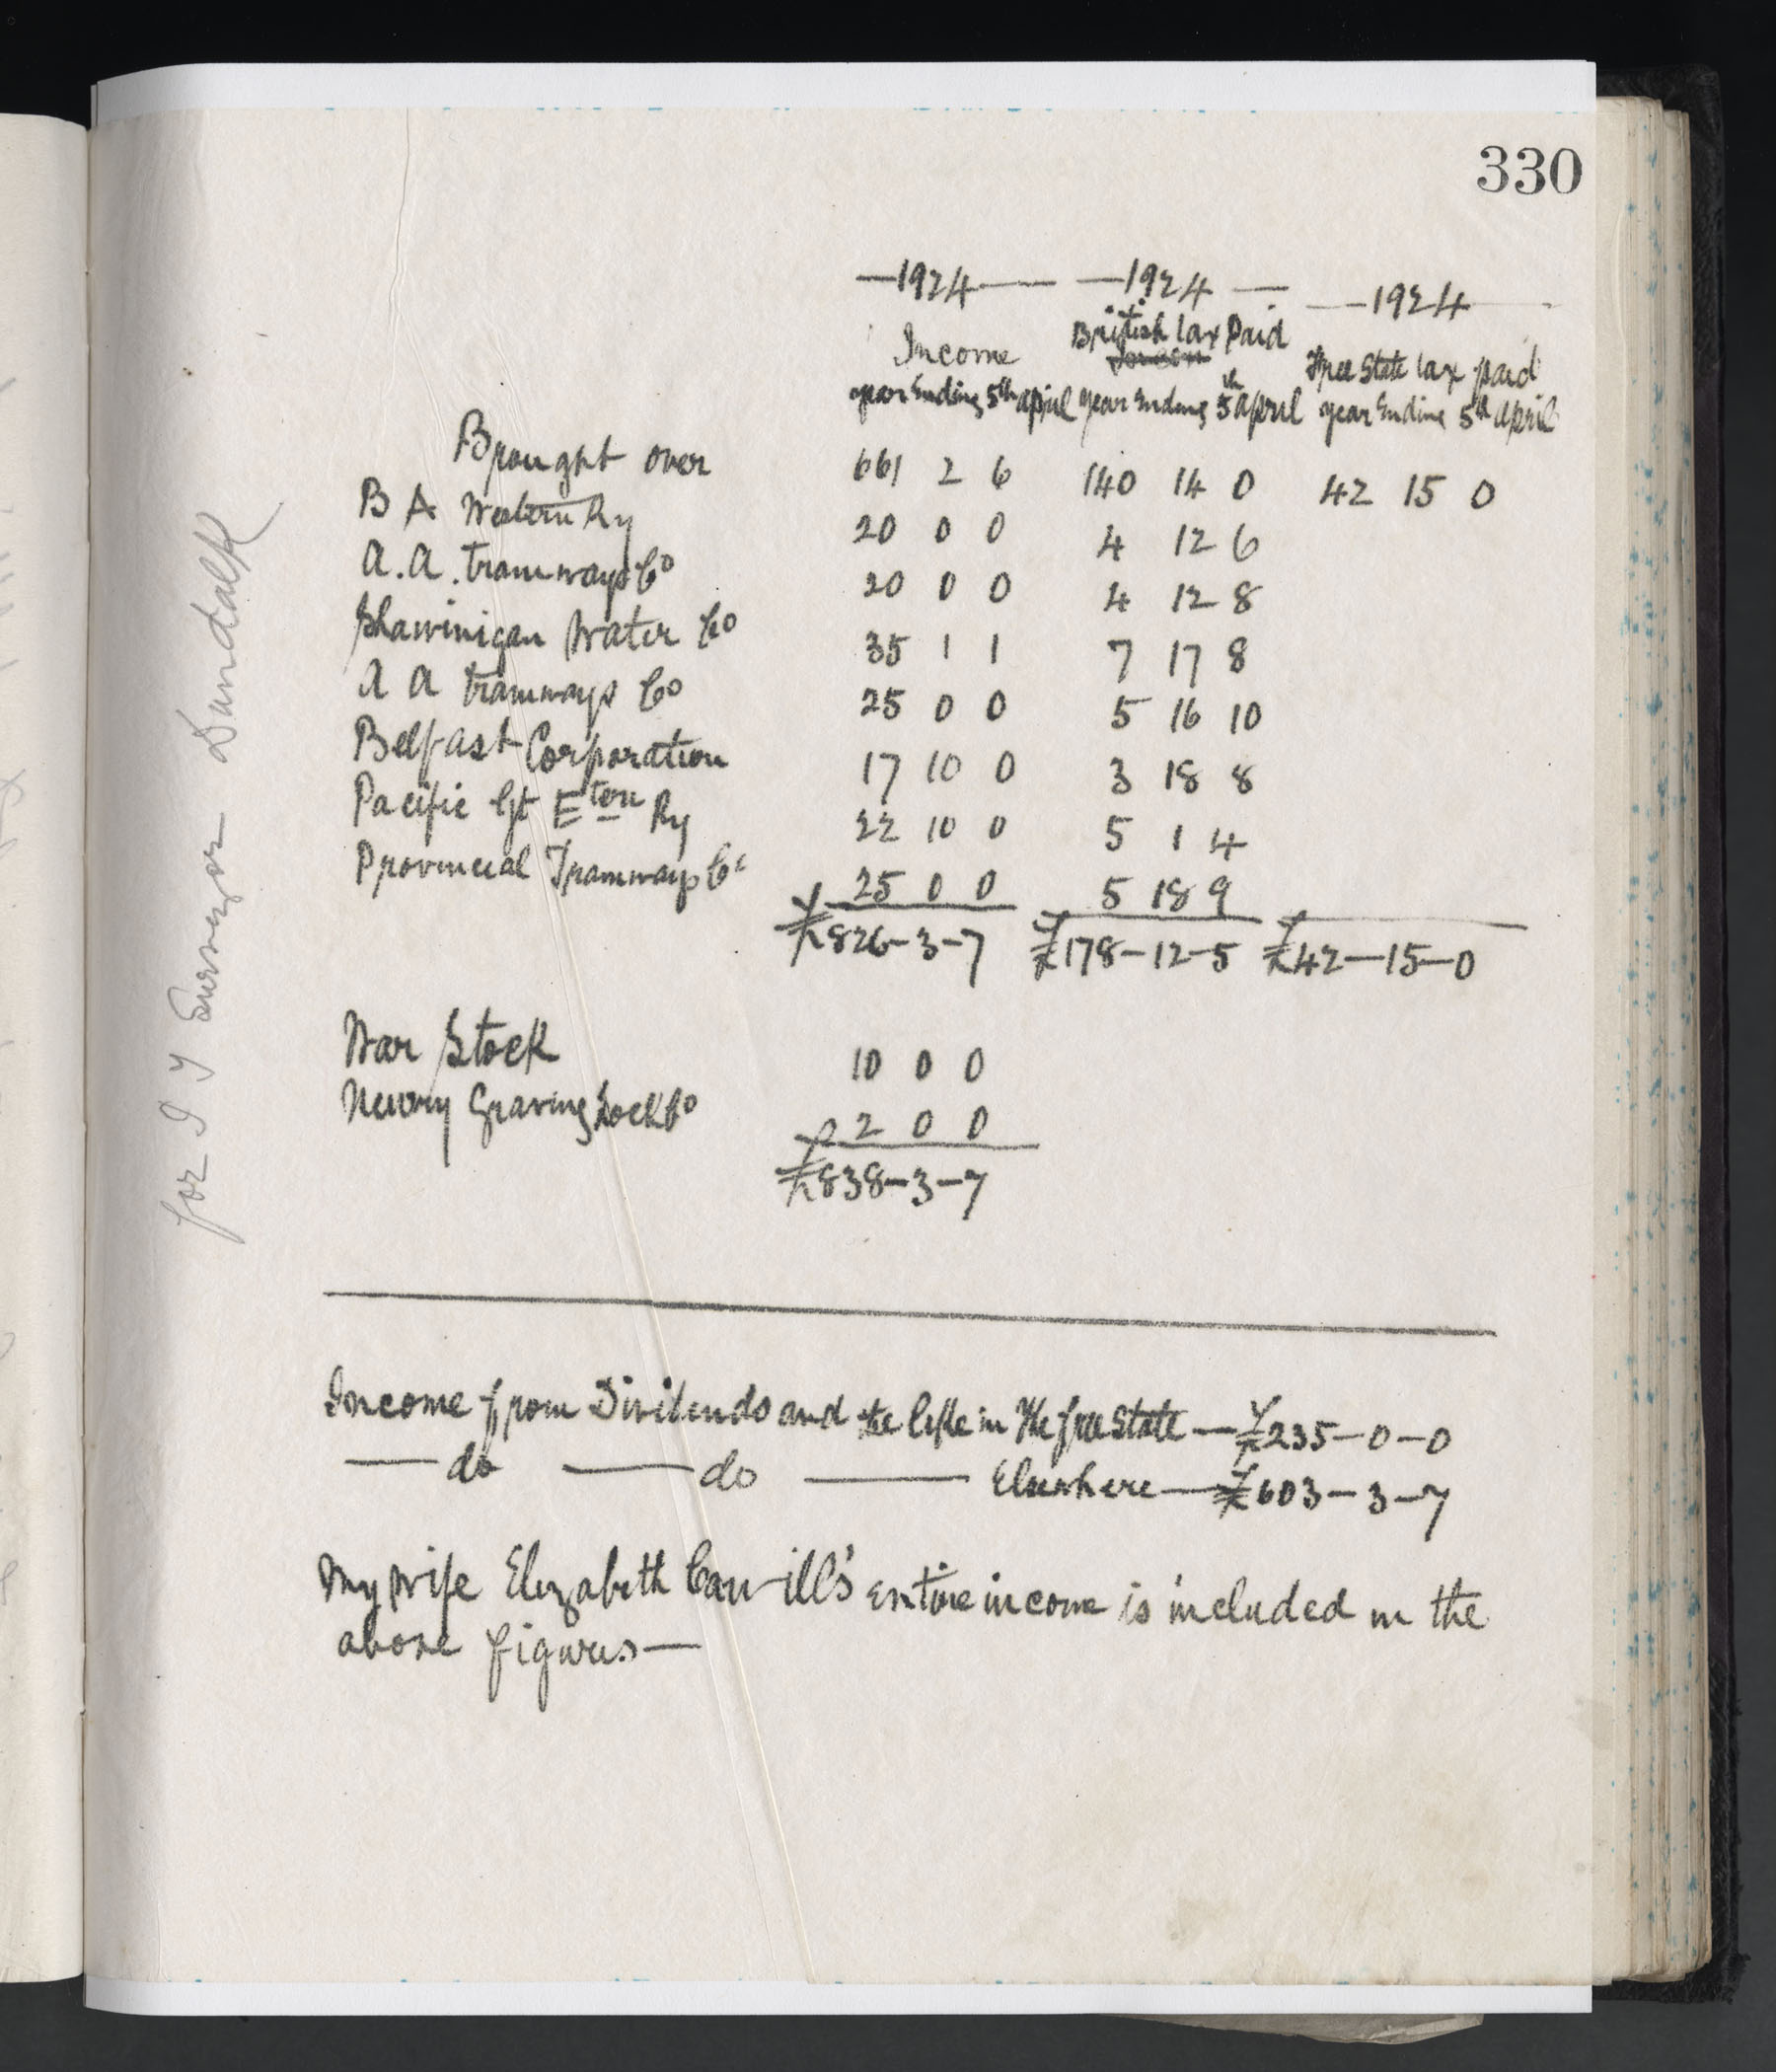 330
—1924— —1924— —1924—
Income British Tax Paid Free State Tax paid
year Ending 5th april year Ending 5th april year Ending 5th april
Brought over 661 2 6 140 14 0 42 15 0
B A Western Ry 20 0 0 4 12 6
A.A. Tramways Co 20 0 0 4 12 8
Shawinigan Water Co 35 1 1 7 17 8
A A Tramways Co 25 0 0 5 16 10
Belfast Corporation 17 10 0 3 18 8
Pacific Gt Etern Ry 22 10 0 5 1 4
Provincial Tramways Co 25 0 0 5 18 9
£826-3-7 £178-12-5 £42-15-0
War Stock 10 0 0
Newry Graving Dock Co 2 0 0
£838-3-7
Income from Dividends and the like in The free State — £235-0-0
— do — do — Elsewhere — £603-3-7
My wife Elizabeth Carvill's entire income is included in the
above figures —
for I T Surveyor Dundalk